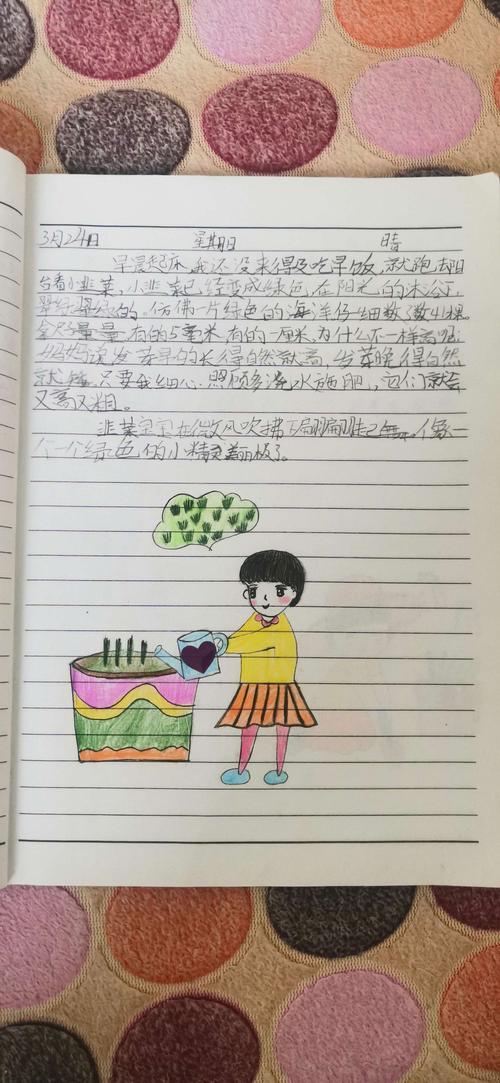 3月24日 星期日 晴
早晨起床,我还没来得及吃早饭,就跑去阳
台看小韭菜,小韭菜已经变成绿色,在阳光的沐浴下,
翠绿翠绿的,仿佛一片绿色的海洋仔细数数41棵
拿尺量量,有的5毫米,有的一厘米,为什么不一样高呢
妈妈说发芽早的长得自然就高,发芽晚得自然
就矮,只要我细心照顾多浇水施肥,它们就会
又高又粗。
韭菜宝宝在微风吹拂下翩翩起舞。像一
个一个绿色的小精灵美丽极了。